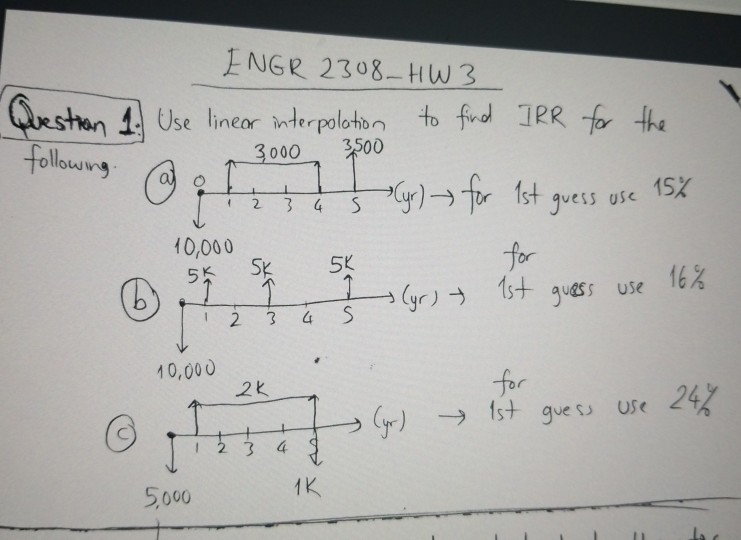 ENGR 2308_HW3
Question 1: Use linear interpolation to find IRR for the
following.
a) 0 3,000 3,500
1 2 3 4 5 (yr) → for 1st guess use 15%
10,000
b) 5K 5K 5K for
1 2 3 4 5 (yr) → 1st guess use 16%
10,000
2K for
c) 1 2 3 4 5 (yr) → 1st guess use 24%
5,000 1K